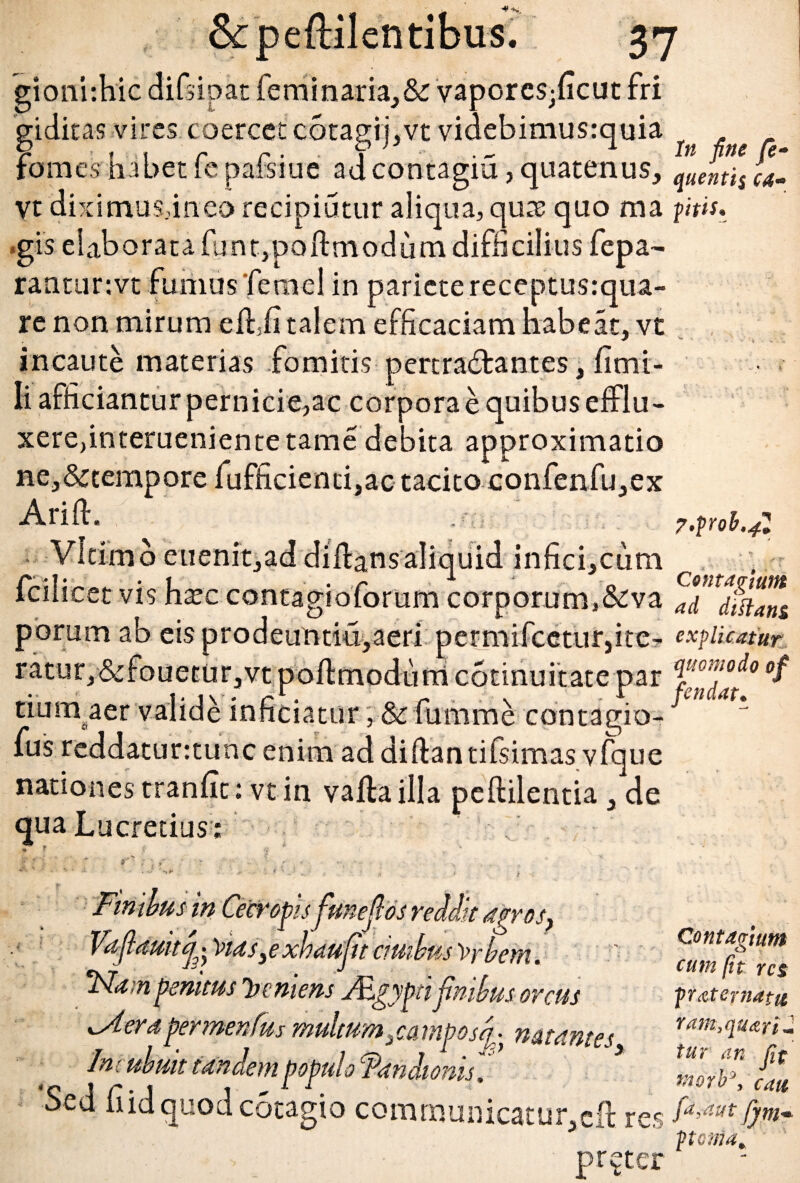 & peſtilentibus. 37
gioni:hic diſsipat ſeminaria,& vapores;ſicut fri
giditas vires coercet cōtagij,vt videbimus:quia
fomes habet ſe paſsiue ad contagiū, quatenus,
vt diximus,in eo recipiūtur aliqua, quæ quo ma
gis elaborata ſunt,poſtmodùm difficilius ſepa-
rantur:vt fumus ſemel in pariete receptus:qua-
re non mirum eſt,ſi talem efficaciam habeāt, vt
incautè materias fomitis pertractantes, ſimi-
li afficiantur pernicie,ac corpora è quibus efflu-
xere,interueniente tamē debita approximatio
ne,&tempore ſufficienti,ac tacito conſenſu,ex
Ariſt.
In fine ſe-
quentis ca-
pitis.
7.prob.4.
Vltimò euenit,ad diſtans aliquid infici,cùm
ſcilicet vis hæc contagioſorum corporum,&va
porum ab eis prodeuntiū,aeri permiſcetur,ite-
ratur,&fouetur,vt poſtmodùm cōtinuitate par
tium aer validè inficiatur, & ſummè contagio-
ſus reddatur:tunc enim ad diſtantiſsimas vſque
nationes tranſit: vt in vaſta illa peſtilentia, de
qua Lucretius:
Contagium
ad diſtans
explicatur
quomodo of
fendat.
Finibus in Cecropis funeſtos reddit agros,
Vaſtauitq; vias,exhauſit ciuibus vrbem.
Nam penitus veniens Ægypti finibus orcus
Aera permenſus multum,camposq; natantes,
Incubuit tandem populo Pandionis.
Sed ſi id quod cōtagio communicatur,eſt res
pręter
Contagium
cum ſit res
præternatu
ram,quæri-
tur an ſit
morb', cau
ſa,aut ſym-
ptoma.